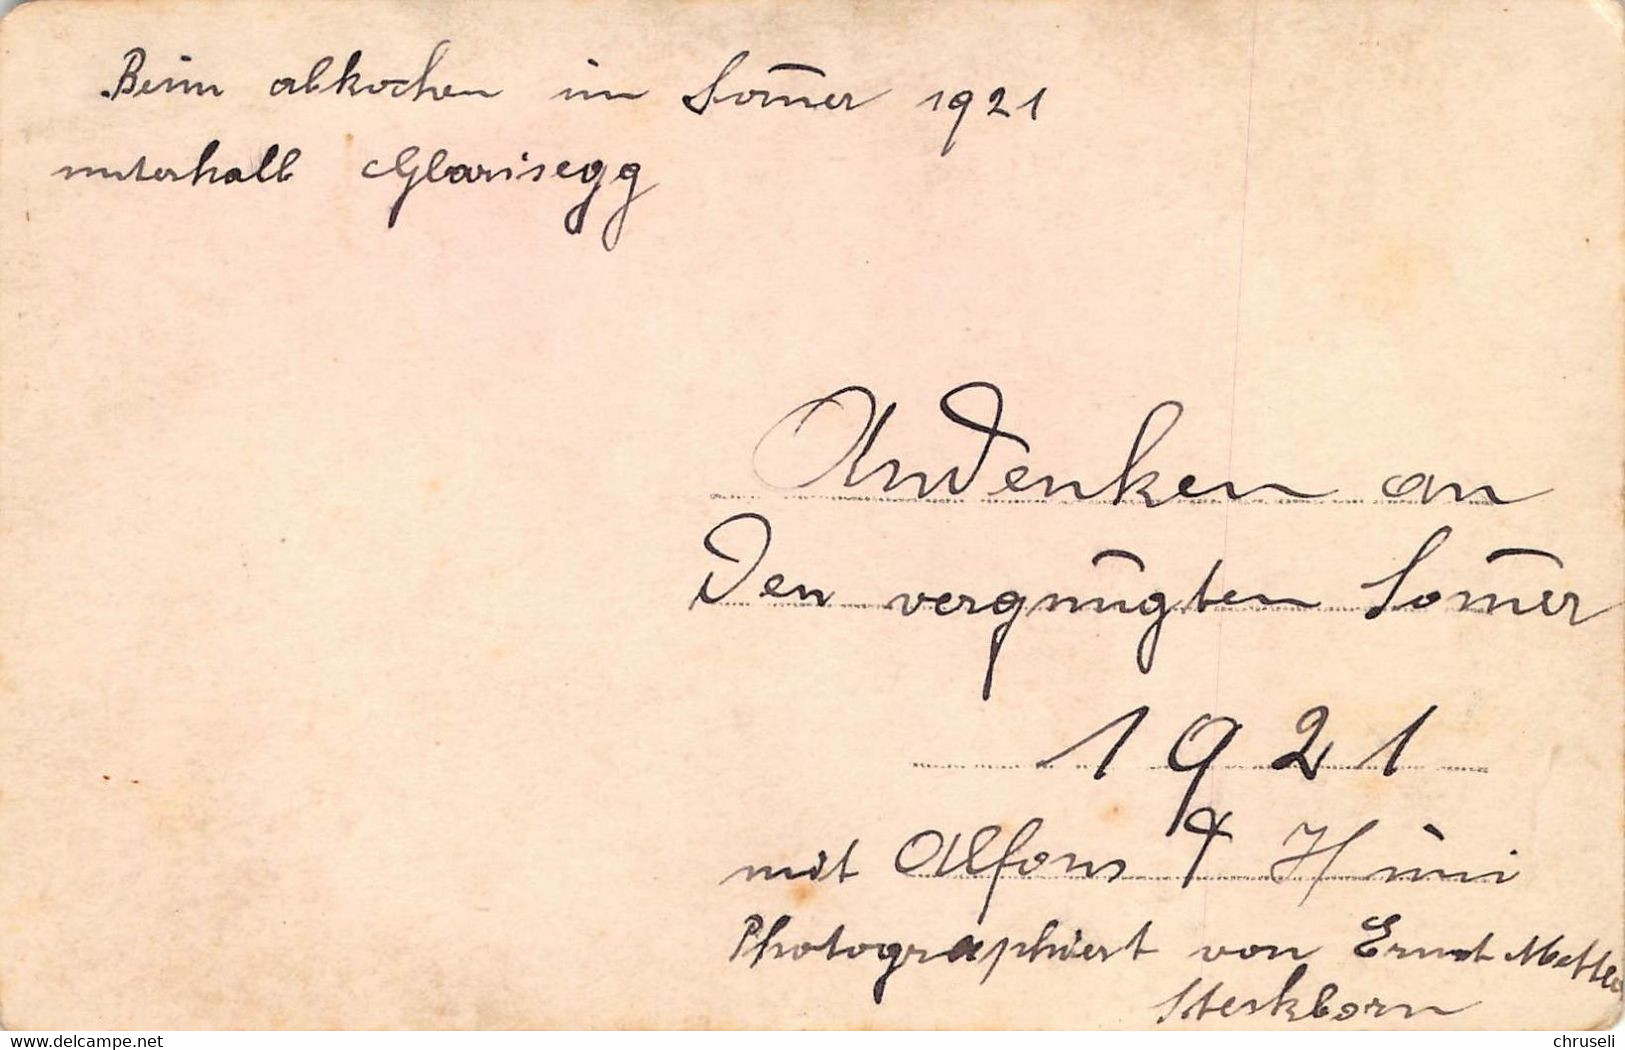 Beim abkochen im Som̄er 1921
unterhalb Glarisegg
Andenken an
Den vergnügten Som̄er
1921
mit Alfons &
Photographiert von Ernst
Steckborn
www.delcampe.net
chruseli